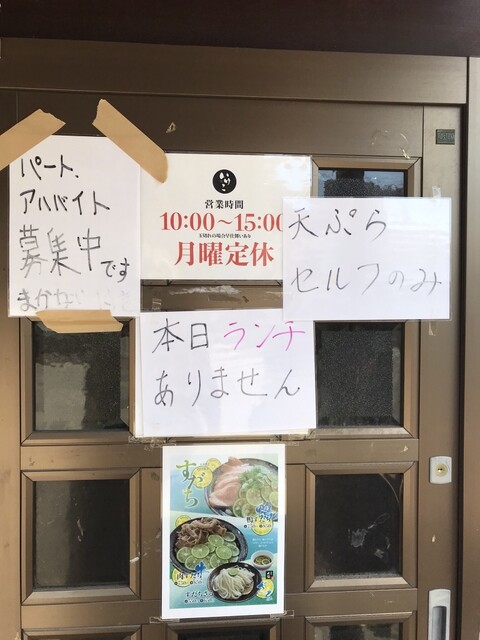 パート、
アルバイト
募集中です
まかない
営業時間
10:00〜15:00
玉切れの場合早仕舞いあり
月曜定休
天ぷら
セルフのみ
本日ランチ
ありません
すだち